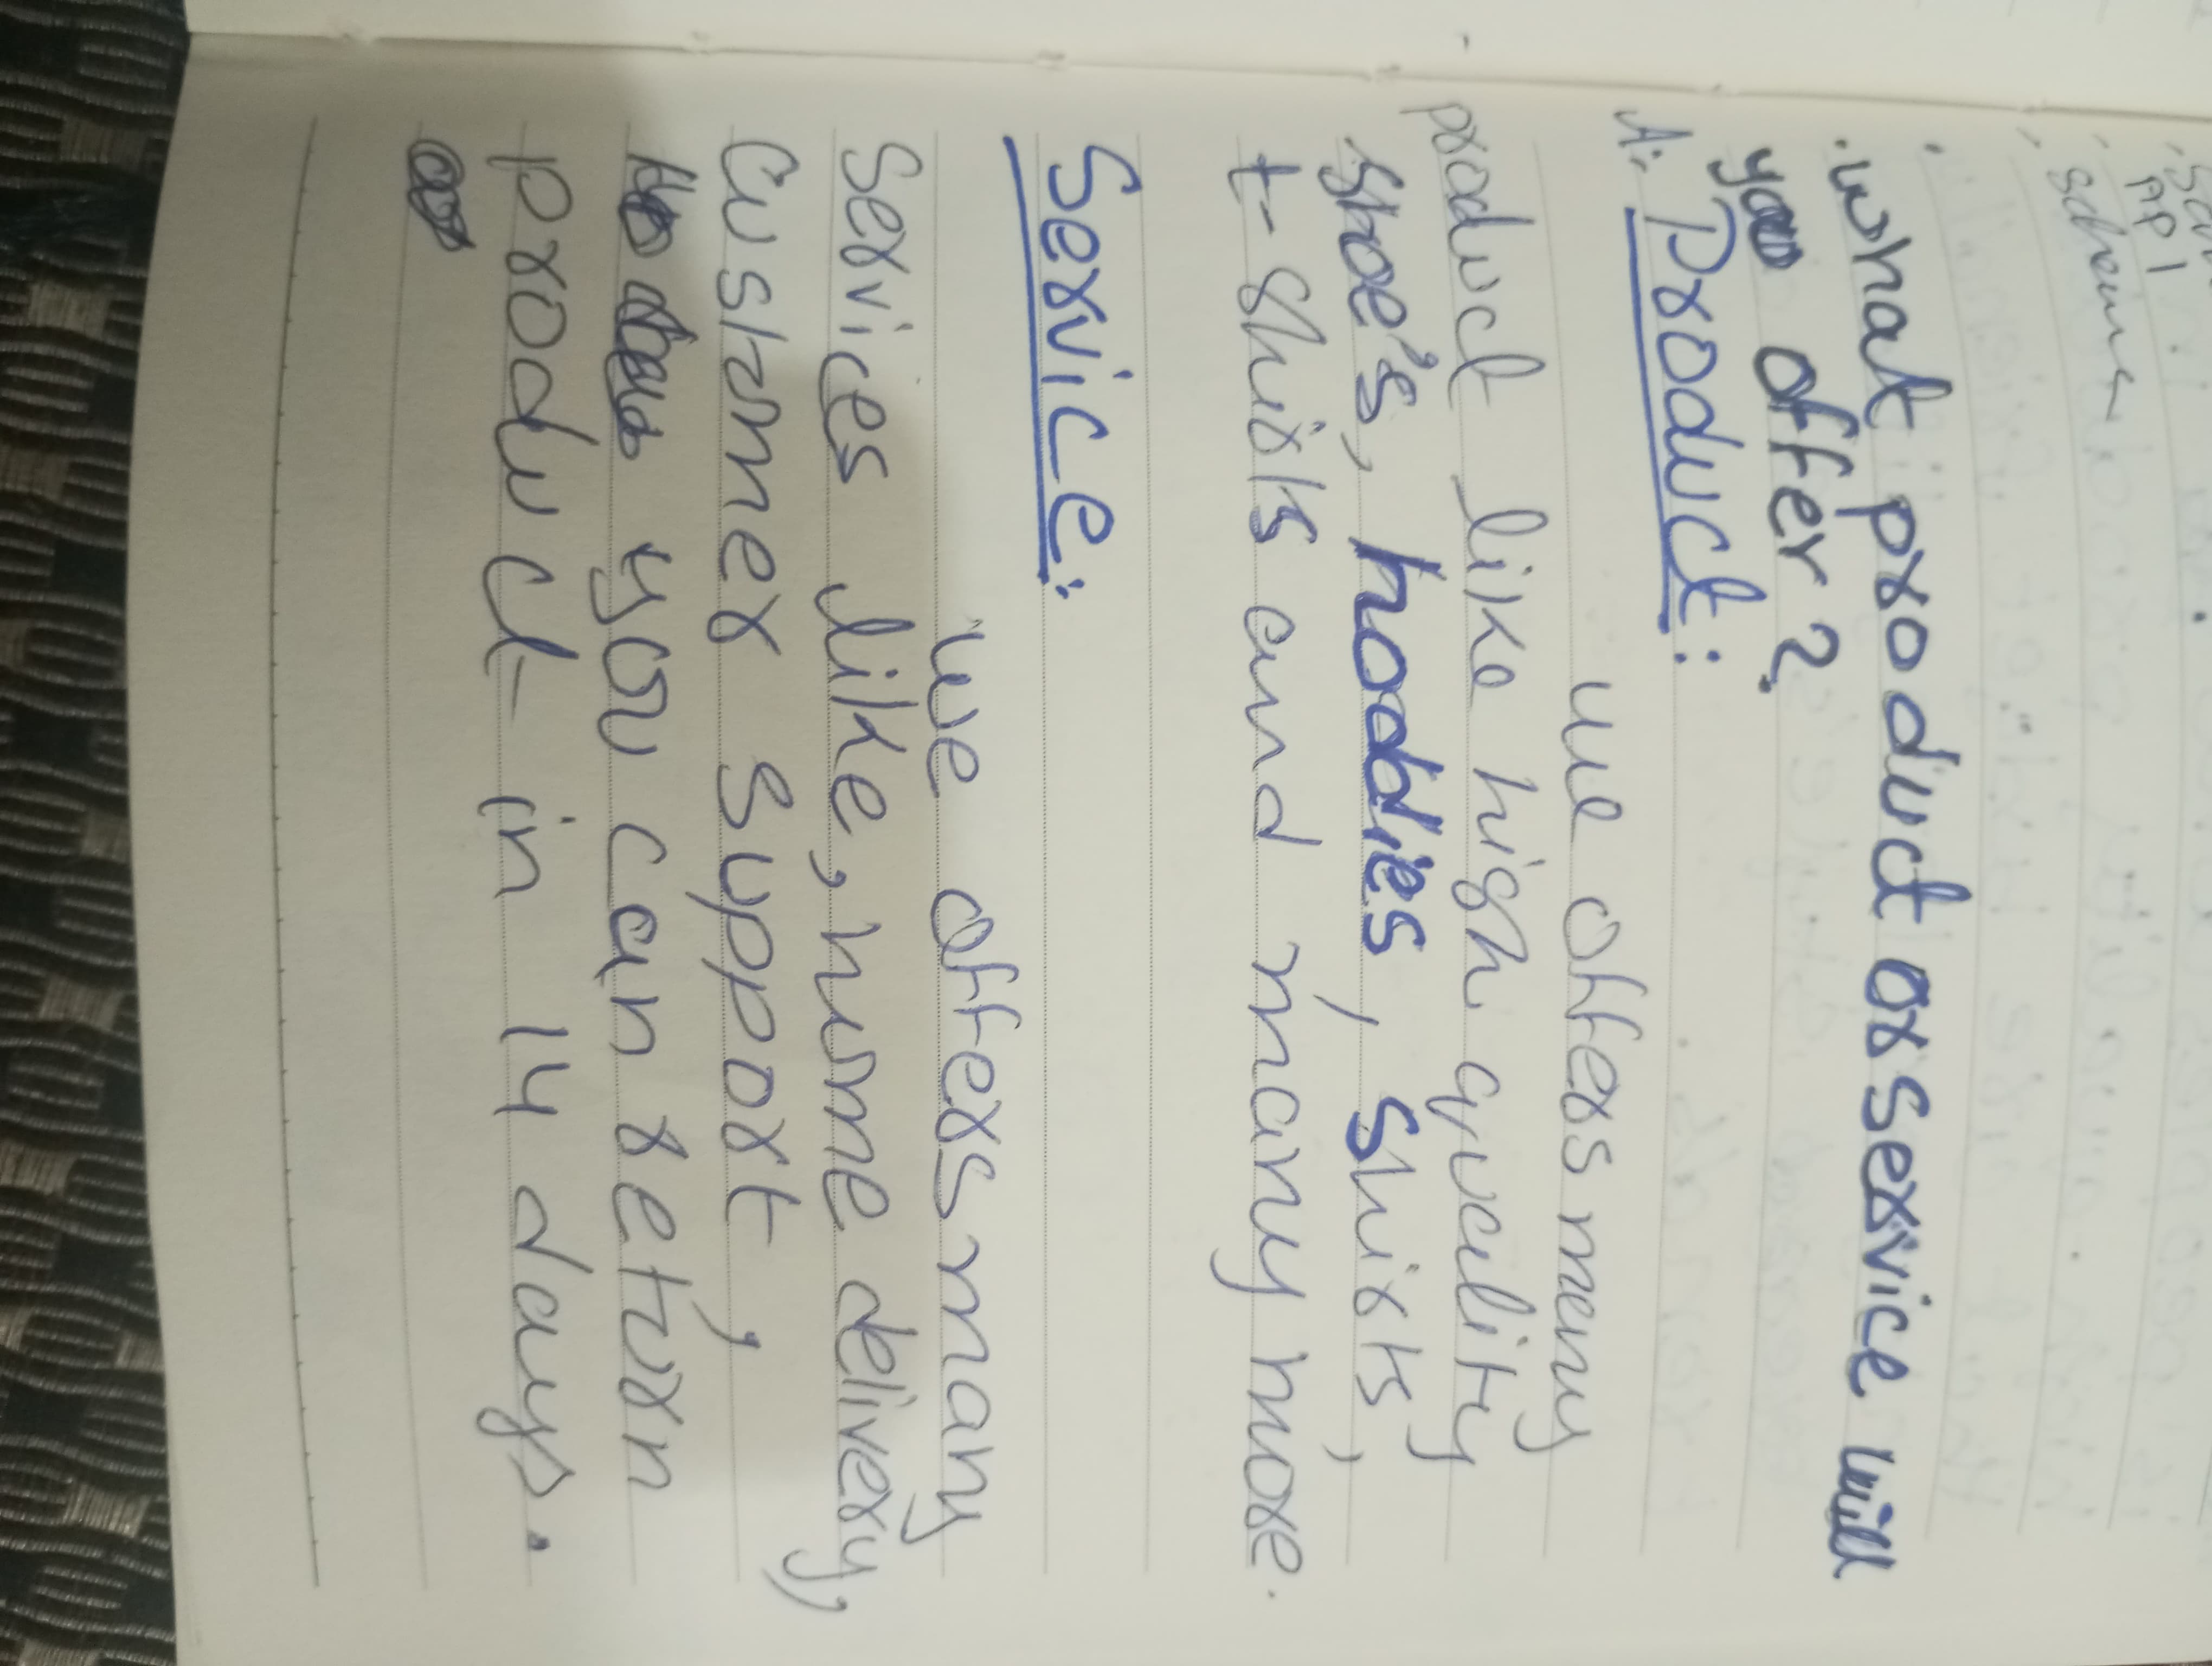 API
scheme
.what product or service will
you offer?
A:. Product:
we offers many
product like high quality
shoe's, hoodies, shirts,
t-shirts and many more.
Service:
we offers many
services like, home delivery,
Customer support,
you can return
product in 14 days.